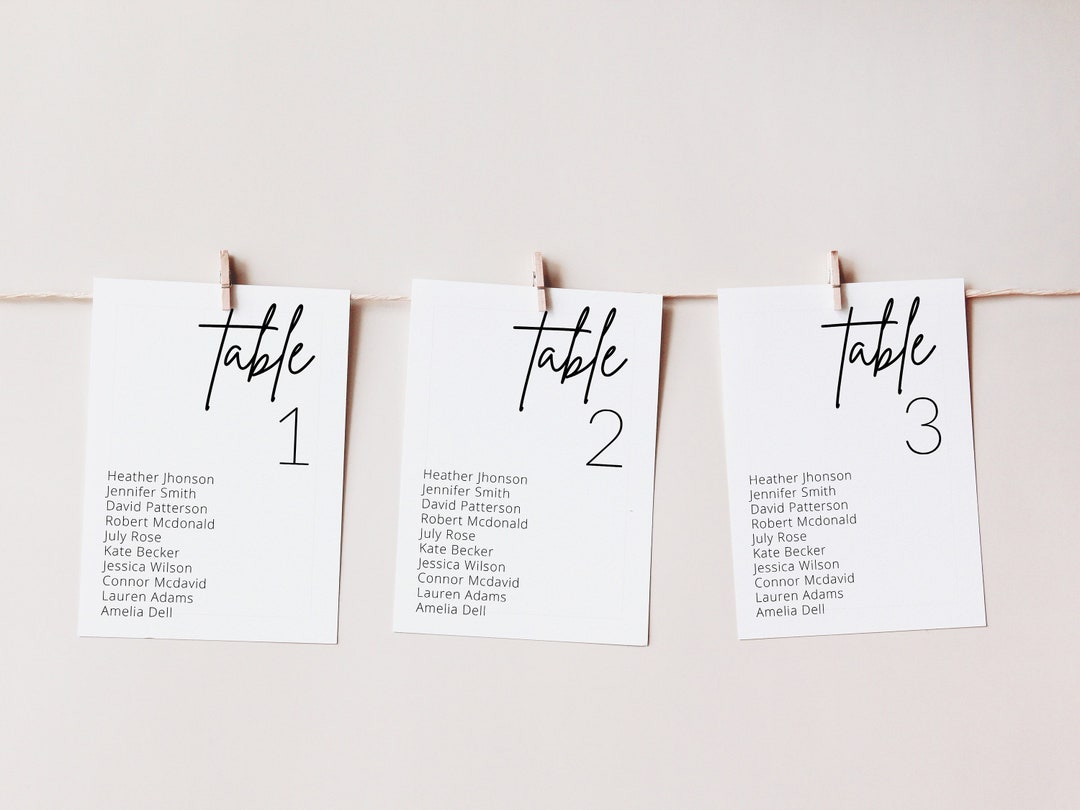 Table
1
Heather Jhonson
Jennifer Smith
David Patterson
Robert Mcdonald
July Rose
Kate Becker
Jessica Wilson
Connor Mcdavid
Lauren Adams
Amelia Dell
Table
2
Heather Jhonson
Jennifer Smith
David Patterson
Robert Mcdonald
July Rose
Kate Becker
Jessica Wilson
Connor Mcdavid
Lauren Adams
Amelia Dell
Table
3
Heather Jhonson
Jennifer Smith
David Patterson
Robert Mcdonald
July Rose
Kate Becker
Jessica Wilson
Connor Mcdavid
Lauren Adams
Amelia Dell